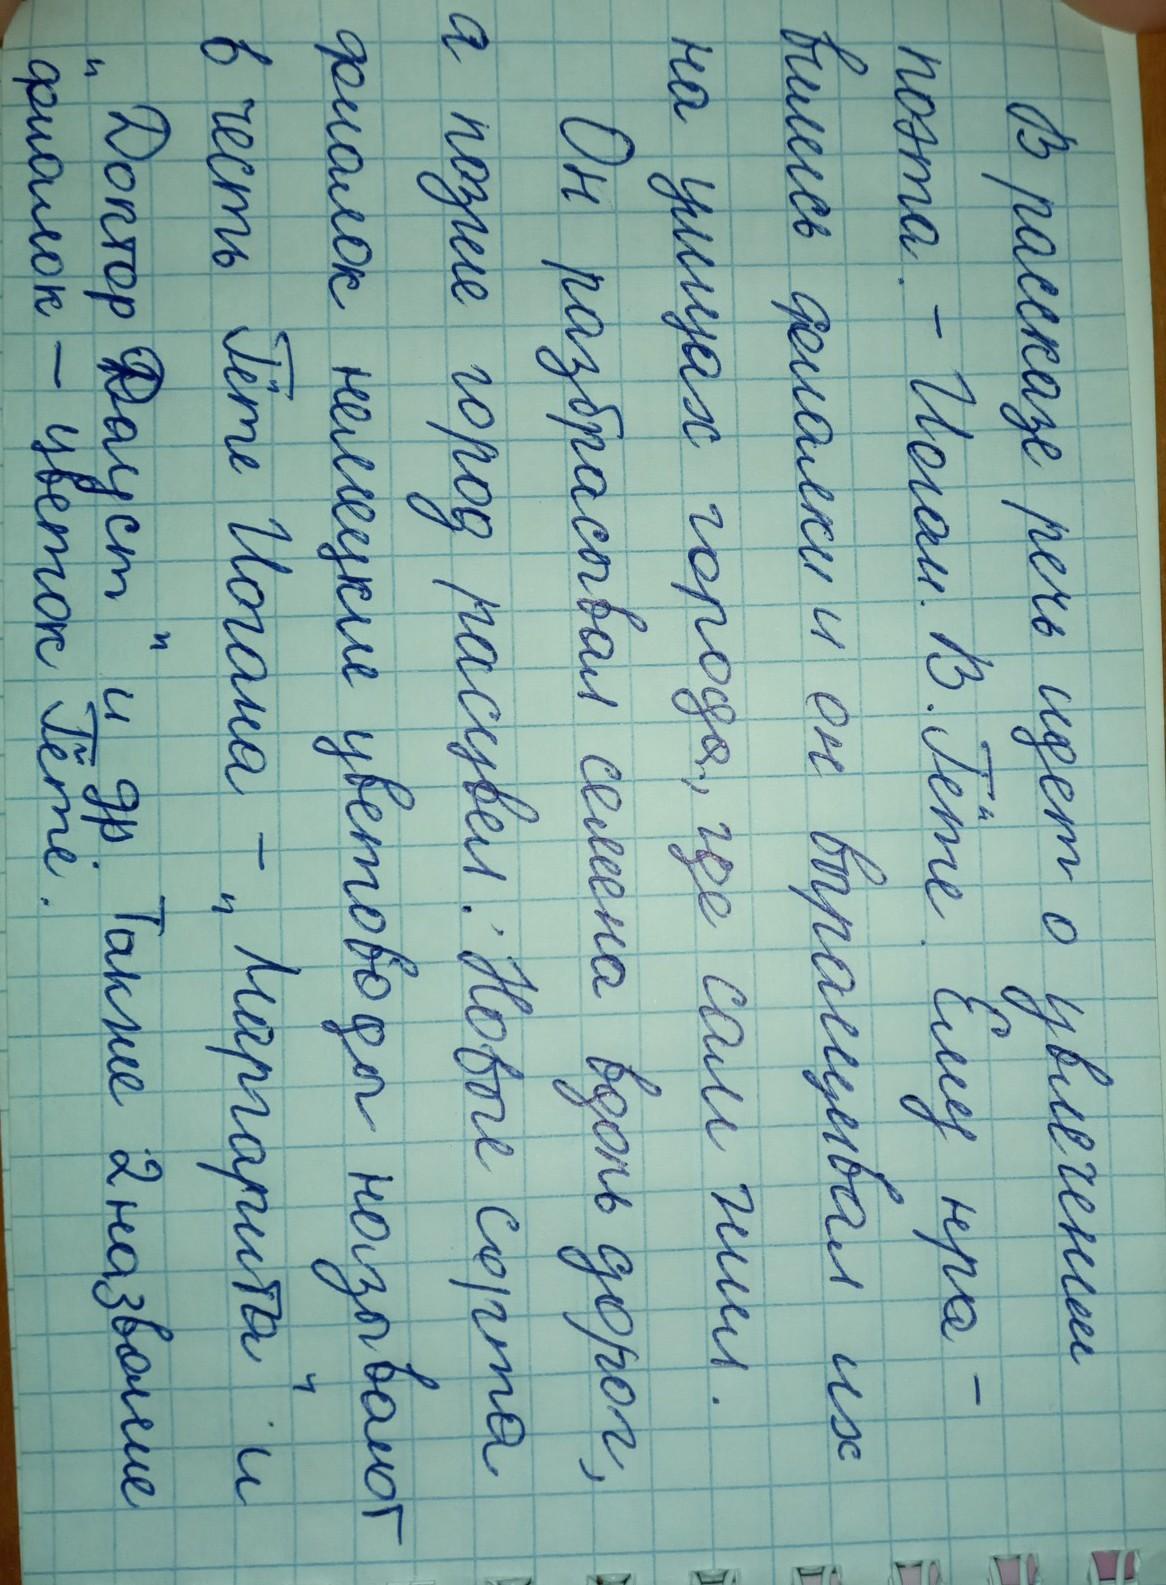 В рассказе речь идет о увлечении
поэта. - Иоган. В. Гёте. Ему нра-
вились фиалки и он выращивал их
на улицах города, где сам жил.
Он разбрасывал семена вдоль дорог,
а позже город расцвел. Новые сорта
фиалок немецкие цветоводы называют
в честь Гёте Иогана - "Маргарита" и
"Доктор Фауст" и др. Также 2 название
фиалок - цветок Гёте.